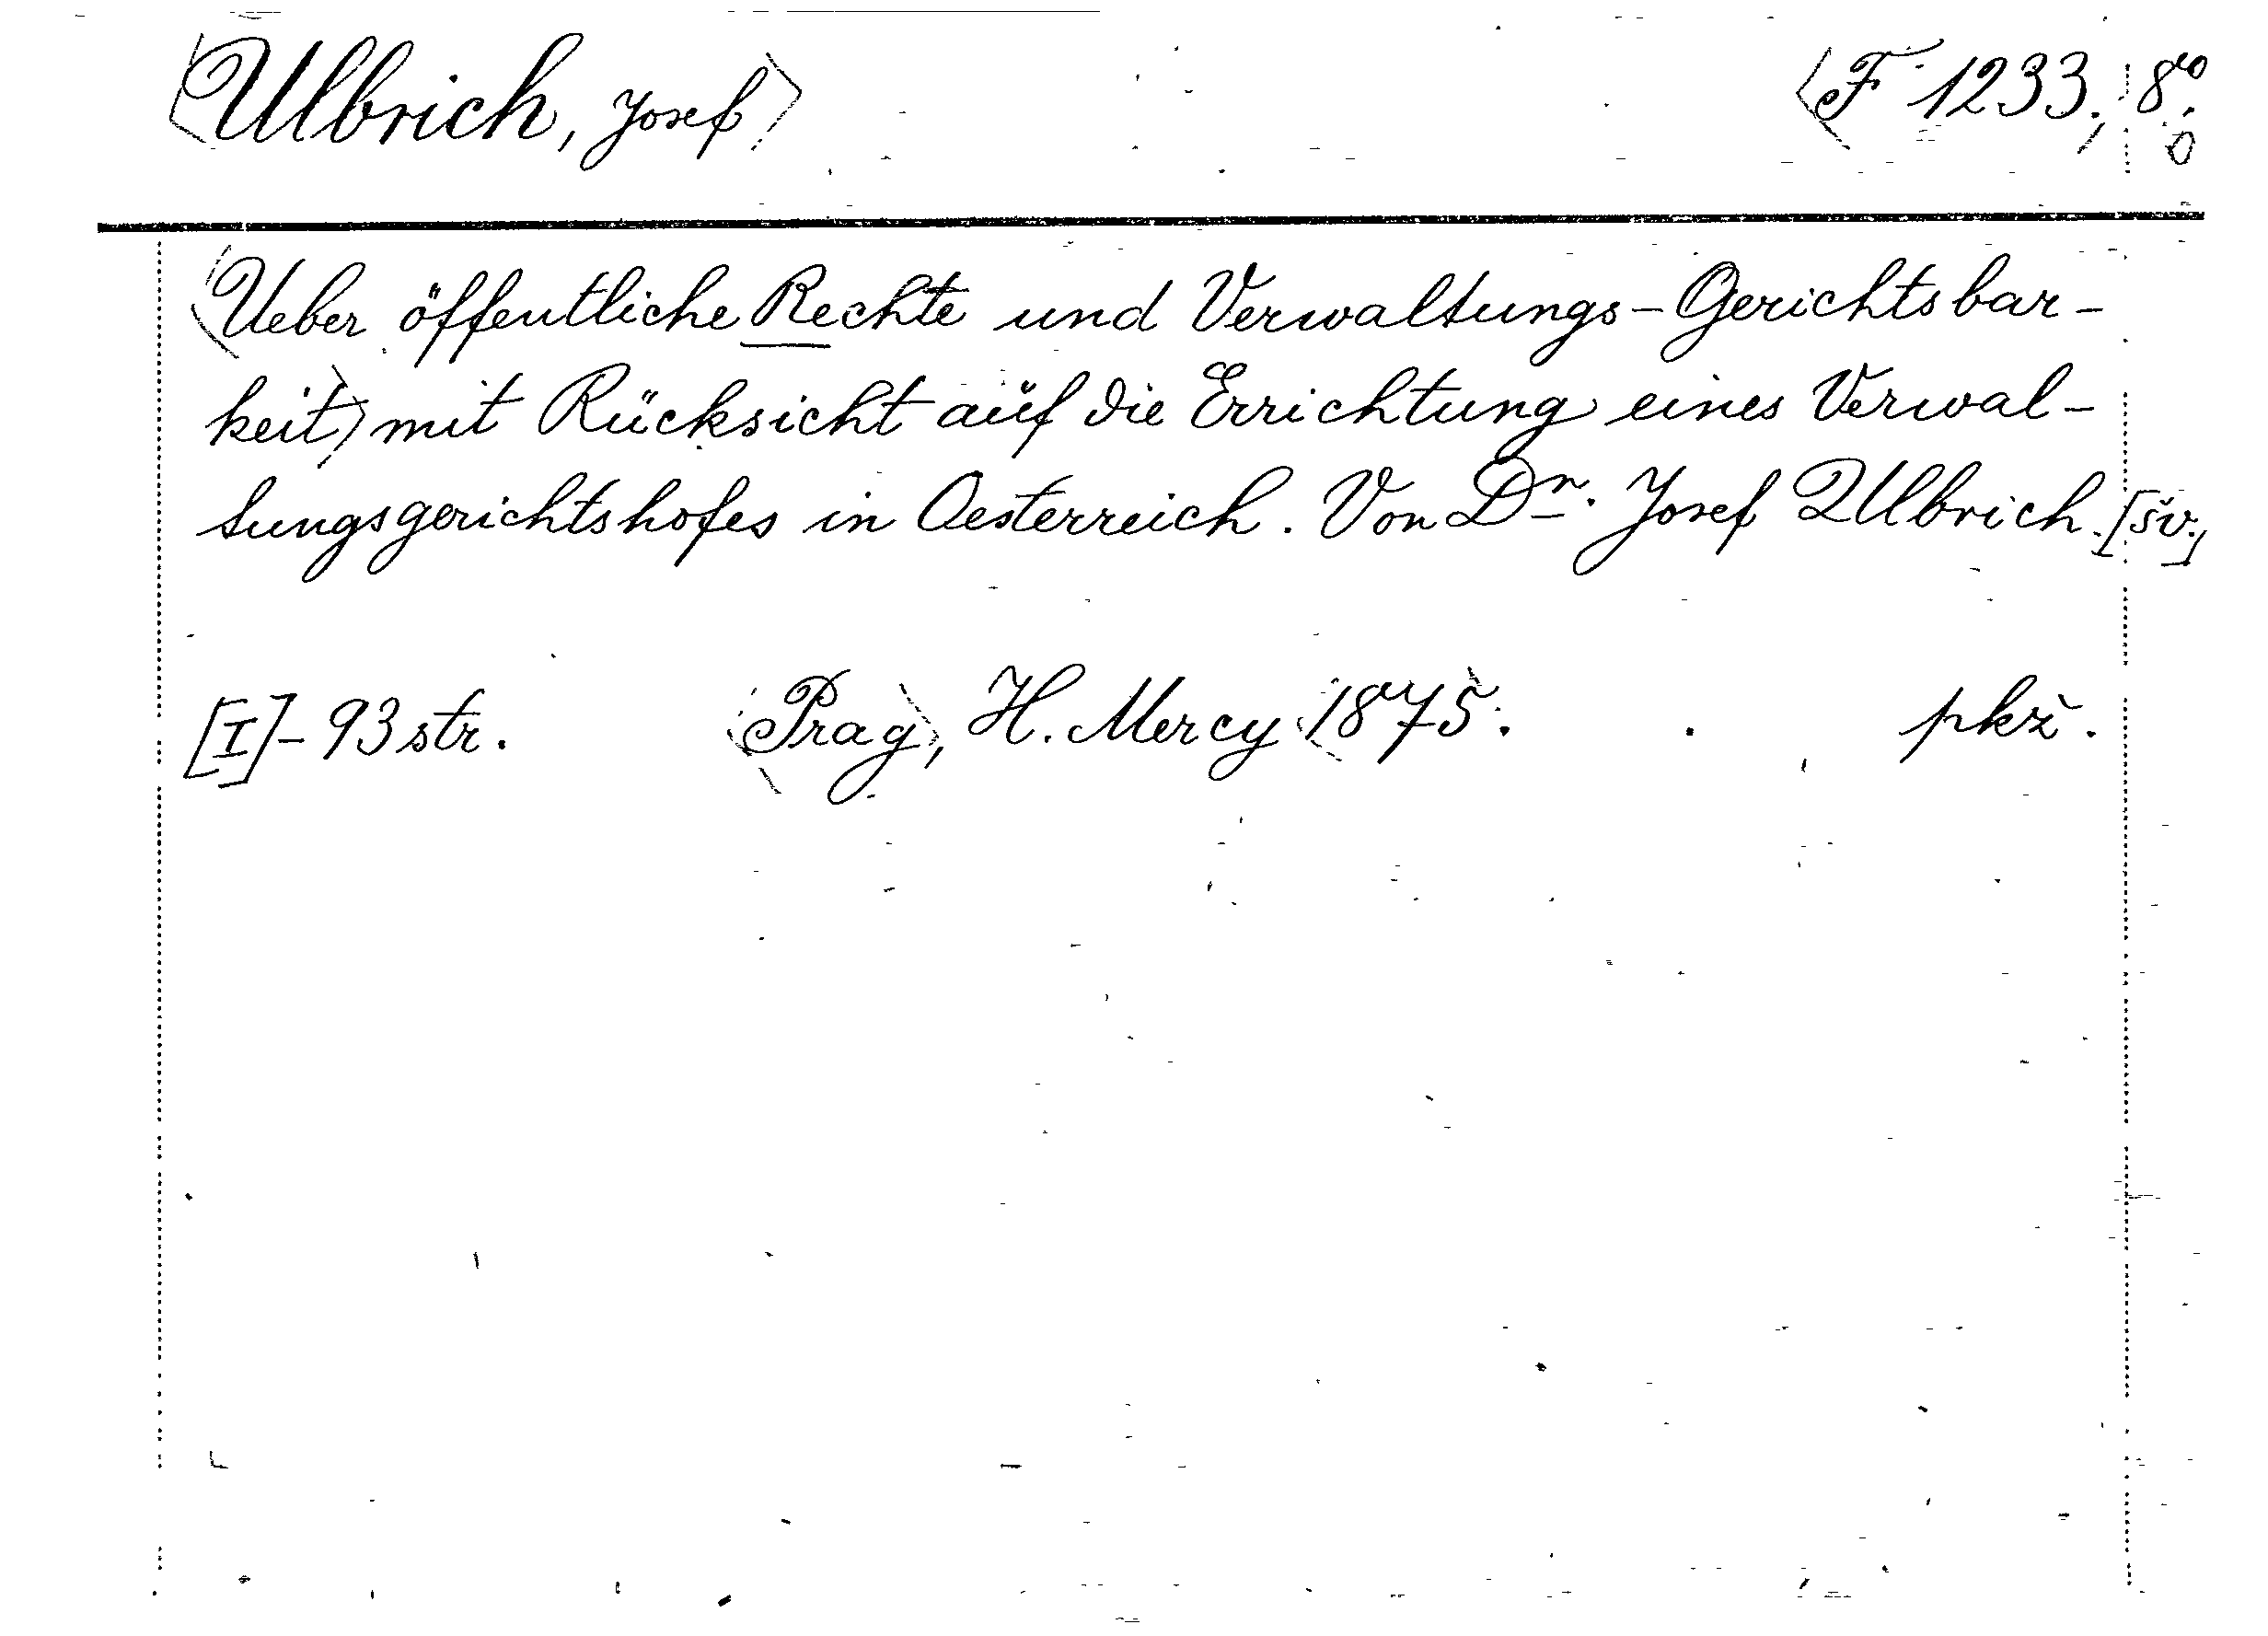 Ulbrich, Josef F 1233., 8º.
Ueber öffentliche Rechte und Verwaltungs-Gerichtsbar-
keit mit Rücksicht auf die Errichtung eines Verwal-
tungsgerichtshofes in Oesterreich. Von Dr. Josef Ulbrich. [šv.]
[I]-93 str. Prag, H. Mercy 1875. pkž.